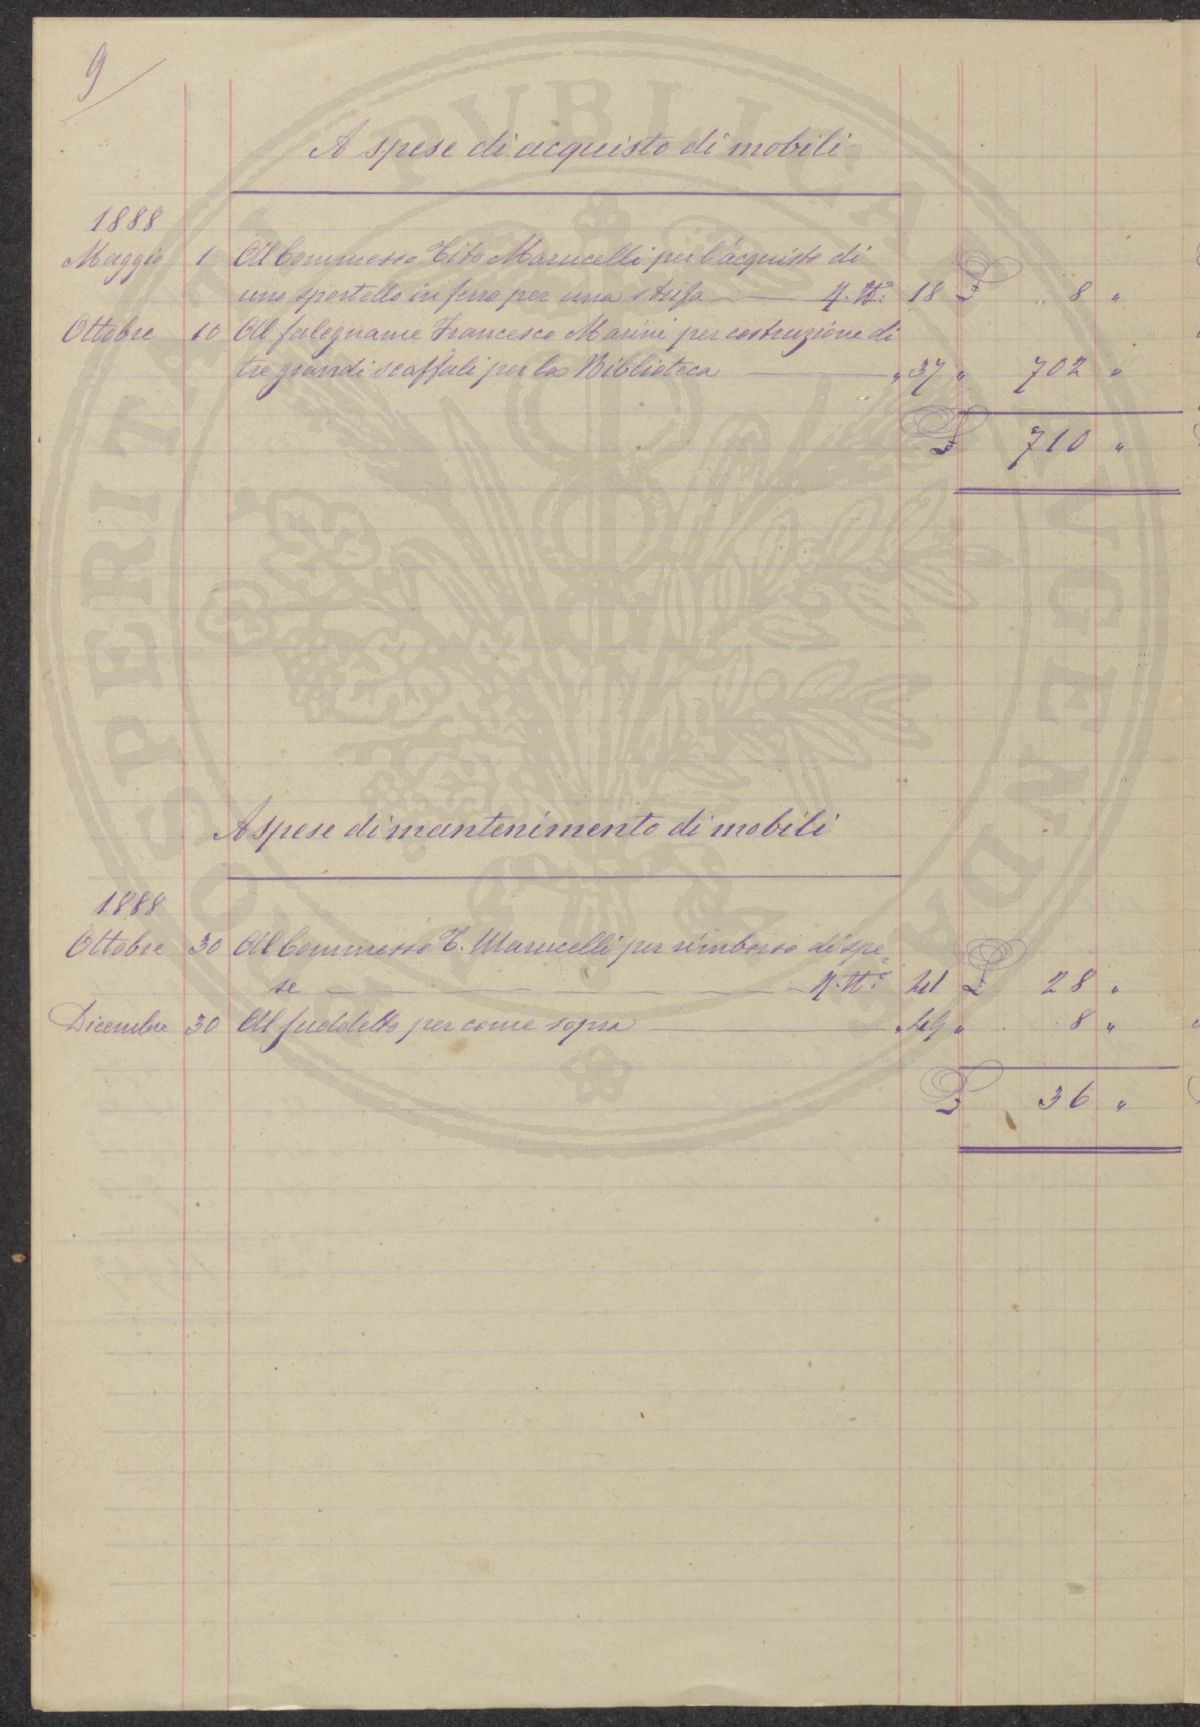 9
A spese di acquisto di mobili
1888
Maggio 1 Al Commesso Tito Marucelli per l'acquisto di
uno sportello in ferro per una stufa — 18 £ " 8 "
Ottobre 10 Al falegname Francesco Marini per costruzione di
tre grandi scaffali per la Biblioteca — " 37 " 702 "
£ 710 "
A spese di mantenimento di mobili
1888
Ottobre 30 Al Commesso T. Marucelli per rimborso di spe=
se — £ 28 "
Dicembre 30 Al suddetto per come sopra — " 49 " 8 "
£ 36 "
PROSPERITATI PVBLICAE AVGENDAE